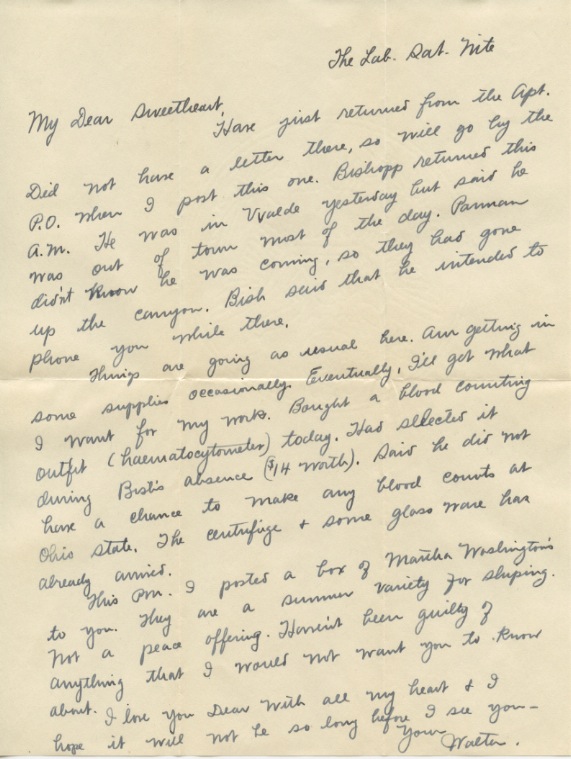 The Lab. Sat. Nite
My Dear Sweetheart,
Have just returned from the Apt.
Did not have a letter there, so will go by the
P.O. when I post this one. Bishopp returned this
A.M. He was in Uvalde yesterday but said he
was out of town most of the day. Parman
didn't know he was coming, so they had gone
up the canyon. Bish said that he intended to
phone you while there.
Things are going as usual here. Am getting in
some supplies occasionally. Eventually, I'll get what
I want for my work. Bought a blood counting
outfit (haematocytometer) today. Had selected it
during Bish's absence ($14 worth). Said he did not
have a chance to make any blood counts at
Ohio State. The centrifuge & some glass ware has
already arrived.
This P.M. I posted a box of Martha Washington's
to you. They are a summer variety for shiping.
Not a peace offering. Haven't been guilty of
anything that I would not want you to know
about. I love you Dear with all my heart & I
hope it will not be so long before I see you—
Your Walter.